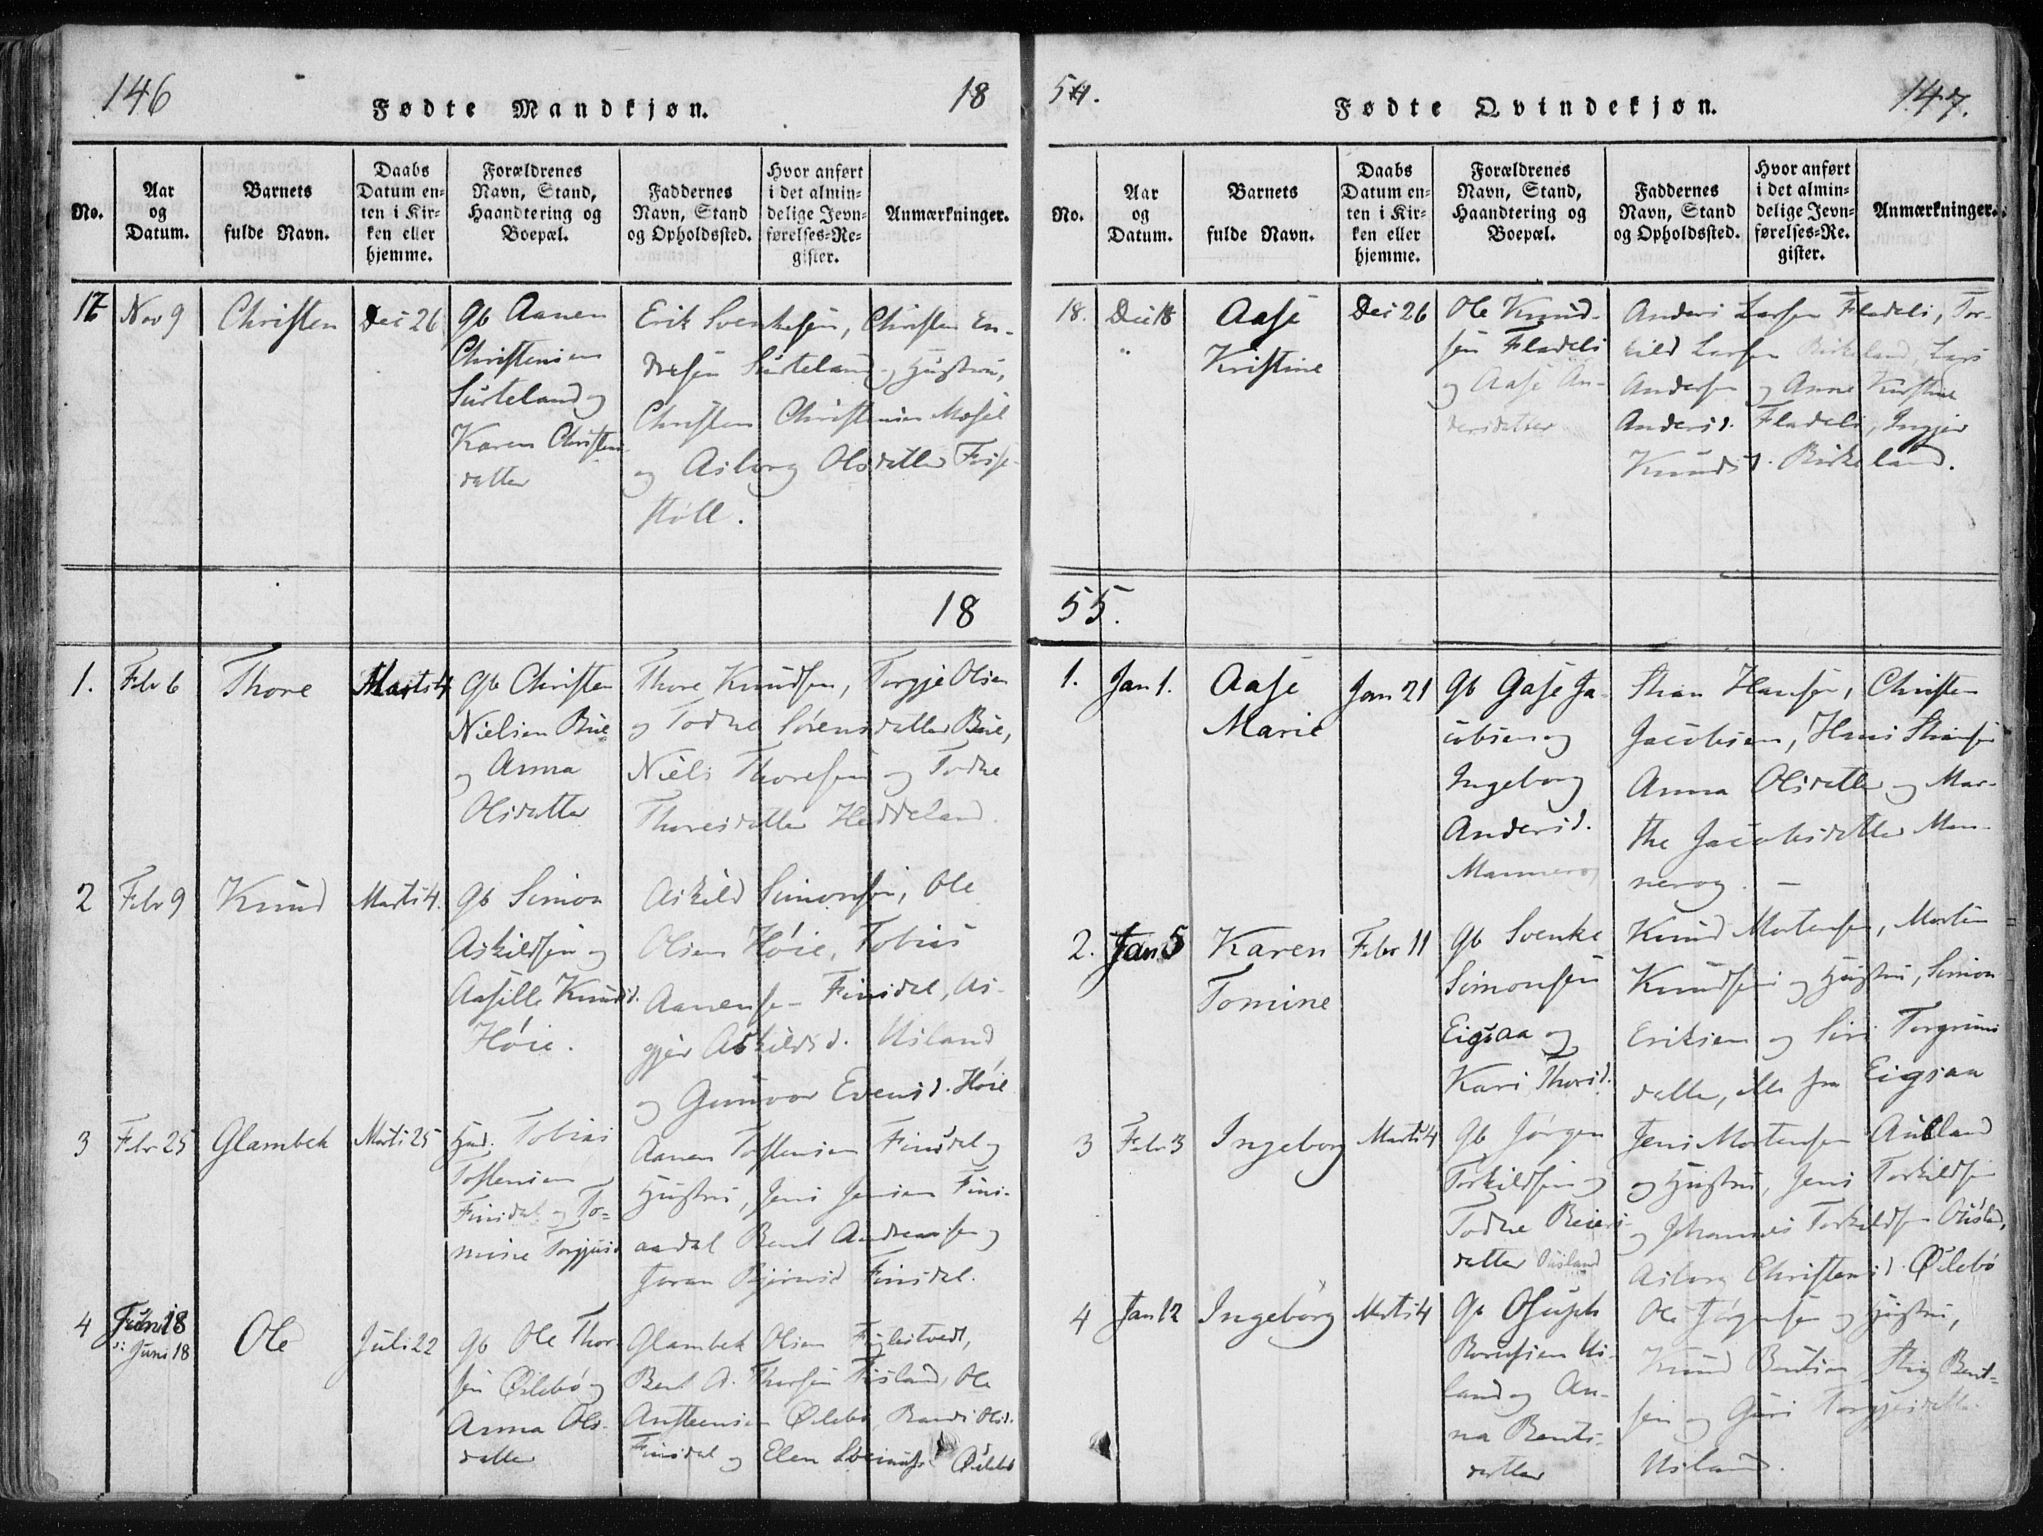 146
Fødte Mandkjøn.
18
No.
Aar og Datum.
Barnets fulde Navn.
Daabs Datum enten i Kirken eller hjemme.
Forældrenes Navn, Stand, Haandtering og Boepæl.
Faddernes Navn, Stand og Opholdssted.
Hvor anført i det almindelige Jevnførelses-Register.
Anmærkninger.
17
Nov 9
Christen
Dec 26
Gb Aanen
Christensen
Surteland og
Karen Christens
datter
Erik Svenkesen, Christen En-
dresen Surteland og Hustru,
Christen Christensen Mæsel
og Asborg Olsdatter Fise-
støll.
18
1.
Febr 6
Thore
Marts 4
Gb Christen
Nielsen Bue
og Anna
Olsdatter
Thore Knudsen, Torgje Olsen
og Todne Sørensdatter Bue,
Niels Thoresen og Todne
Thoresdatter Heddeland.
2
Febr 9
Knud
Marts 4.
Gb Simon
Askildsen og
Aasille Knudsd.
Høie.
Askild Simonsen, Ole
Olsen Høie, Tobias
Aanense- Finsdal, As-
gjer Askildsd. Usland
og Gunvor Evensd. Høie
3
Febr 25
Glambek
Marts 25
Husd. Tobias
Toftensen
Finsdal og To-
mine Torgjusd
Aanen Toftensen Finsdal og
Hustru, Jens Jensen Fins-
aadal Bent Andreassen og
Joran Bjørnsd Finsdal.
4
Juni 18
s: Juni 18
Ole
Juli 22
Gb Ole Thor
sen Øilebø og
Anna Ols-
datter
Glambek Olsen Fuglestvedt,
Bent A. Thorsen Tisland, Ole
Anstensen Øilebø, Randi Olsd.
Finsdal og Elen Øilebø
54.
Fødte Qvindekjøn.
147.
No.
Aar og Datum.
Barnets fulde Navn.
Daabs Datum enten i Kirken eller hjemme.
Forældrenes Navn, Stand, Haandtering og Boepæl.
Faddernes Navn, Stand og Opholdssted.
Hvor anført i det almindelige Jevnførelses-Register.
Anmærkninger.
18.
Dec 18
Aase
Kristine
Dec 26
Ole Knud-
sen Fladeli
og Aase An-
dersdatter
Anders Larsen Fladeli, Tor-
kild Larsen Birkeland, Lars
Andersen og Anne Kirstine
Andersd. Fladeli, Ingjer
Knudsd. Birkeland.
55.
1.
Jan 1.
Aase
Marie
Jan 21
Gb Gase Ja-
cobsen og
Ingeborg
Andersd.
Mannerog
Stian Hansen, Christen
Jacobsen, Hans Stiansen
Anna Olsdatter og Mar-
the Jacobsdatter Man-
nerog. -
2.
Jan 5
Karen
Tomine
Febr 11
Gb Svenke
Simonsen
Eigsaa og
Kari Thorsd.
Knud Mortensen, Morten
Knudsen og Hustru, Simon
Eriksen og Siri Torgrims
datter, alle fra Eigsaa
3
Febr 3
Ingeborg
Marts 4
Gb Jørgen
Torkildsen og
Todne Reiers-
datter Usland
Jens Mortensen Aubland
og Hustru, Jens Torkildsen
og Johannes Torkildsen Usland,
Asborg Christensd. Øilebø
4
Jan 12
Ingeborg
Marts 4
Gb Osuph
Bentsen Us-
land og An-
na Bents-
datter
Ole Jørgensen og Hustru,
Knud Bentsen, Stig Bent-
sen og Guri Torgjesdatter
Usland.